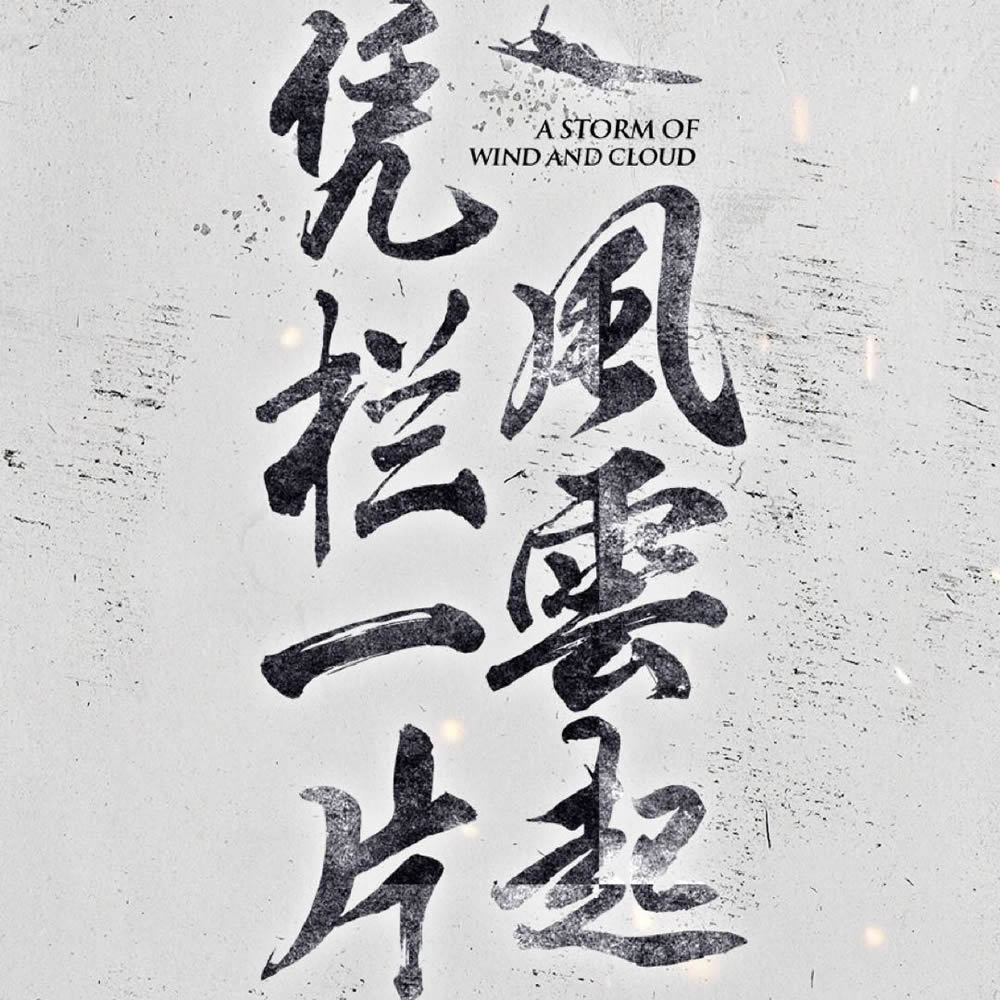 凭栏一片
風雲起
A STORM OF
WIND AND CLOUD